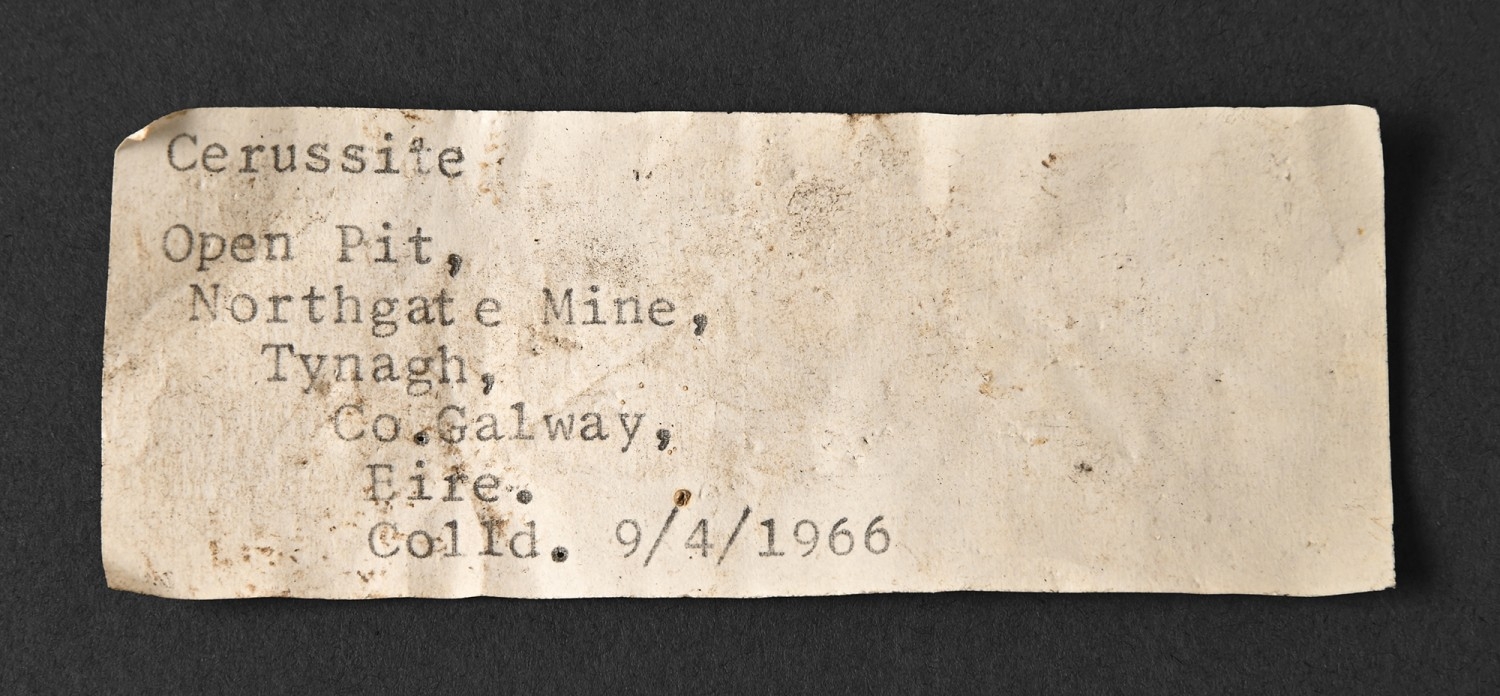 Cerussite
Open Pit,
Northgate Mine,
Tynagh,
Co.Galway,
Eire.
Colld. 9/4/1966